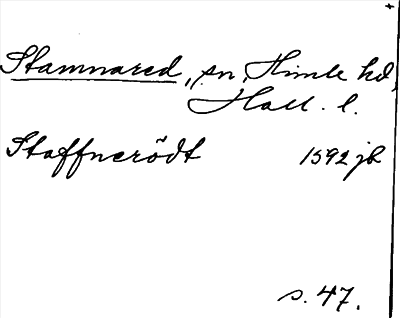 Stamnared, sn, Himle hd,
Hall. l.
Staffnerödt 1592 jb
s. 47.